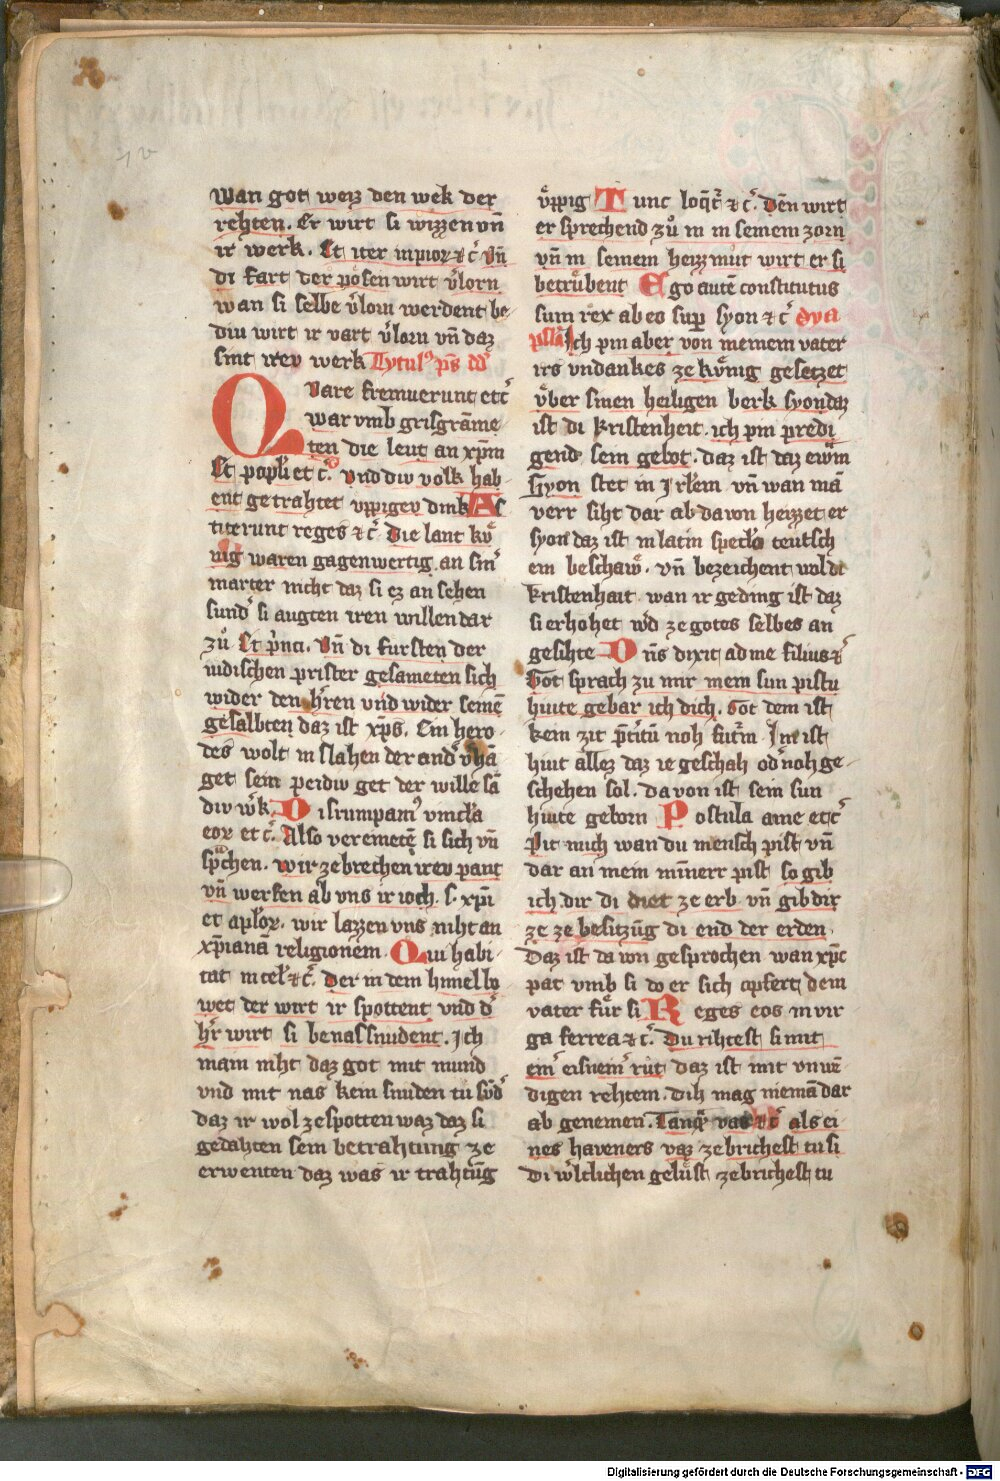 wan got weiz den wek der
rehten. Er wirt si wizzen vn̄
ir werk. Et iter impior⁊ ⁊ c̄ Vn̄
di fart der pösen wirt v̓lorn
wan si selbe v̓lorn werdent be
diu wirt ir vart v̓lorn vn̄ daz
sint irev werk Tytul⁹ ps̄ dd̄
Quare fremuerunt etc̄
war vmb grisgrāme
ten die leut an xp̄m
Et popl̓i et c̄ vnd div volk hab
ent getrahtet vppigev dink As
titerunt reges ⁊ c̄ Die lant kü
nig waren gagenwertig an sin̓
marter nicht daz si ez an sehen
sund̓ si augten iren willen dar
zů Et p̓nci. Vn̄ di fursten der
iudischen prister gesameten sich
wider den h̓ren vnd wider seinē
gesalbten daz ist xp̄s. Ein hero
des wolt in slahen der and̓ v̓hā
get sein peidiv get der wille sā
div w̓k Disrumpam⁹ vincl̓a
eor⁊ et c̄. Also veremetē si sich vn̄
sp̓chen. wir zebrechen irev pant
vn̄ werfen ab vns ir ioch. s. xp̄i
et apl̓or⁊. wir lazzen vns niht an
xp̄ianā religionem. Qui habi
tat in cel̓ ⁊ c̄. Der in dem himel lo
wet der wirt ir spottent vnd d̓
h̓r wirt si benassnudent. Ich
main niht daz got mit mund
vnd mit nas kein snuden tu sūd̓
daz ir wol zespotten waz daz si
gedahten sein betrahtung ze
erwenten daz was ir trahtūg
v̈ppig Tunc loq̄t̄ ⁊ c̄. Den wirt
er sprechend zů in in seinem zorn
vn̄ in seinem heizzmůt wirt er si
betrübent Ego autē constitutus
sum rex ab eo sup̄ syon ⁊ c̄ dya
psl̄a Ich pin aber von meinem vater
irs vndankes ze künig gesetzet
über sinen heiligen berk syon daz
ist di kristenheit. ich pin predi
gend sein gebot. daz ist daz ewm̄
Syon stet in Jrl̓em vn̄ wan mā
verr siht dar ab da von heizzet er
syon daz ist in latin specl̓o teutsch
ein beschaw̓. vn̄ bezeichent wol di
kristenhait wan ir geding ist daz
si erhohet w̓d ze gotes selbes an
gesihte Dn̄s dixit ad me filius ⁊ c̄
Got sprach zu mir mein sun pistu
hiute gebar ich dich. Got dem ist
kein zit p̄t̓itū noh fut̓m Im ist
hiut allez daz ie geschah od̓ noh ge
schehen sol. da von ist sein sun
hiute geborn Postula a me etc̄
Pit mich wan du mensch pist vn̄
dar an mein minn̄err pist so gib
ich dir di diet ze erb vn̄ gib dir
ze ze besitzūg di end der erden
Daz ist da von gesprochen wan xp̄c
pat vmb si do er sich opfert dem
vater für si Reges eos in vir
ga ferrea ⁊ c̄. Du rihtest si mit
ein̓ eisnein̓ rüt daz ist mit vnwē
digen rehtem. dih mag nieman dar
ab genemen. Tanq̄ vas ⁊ c̄ als ei
nes haveners vaz zebrichest tu si
Di w̓ltlichen gelüst zebrichest tu